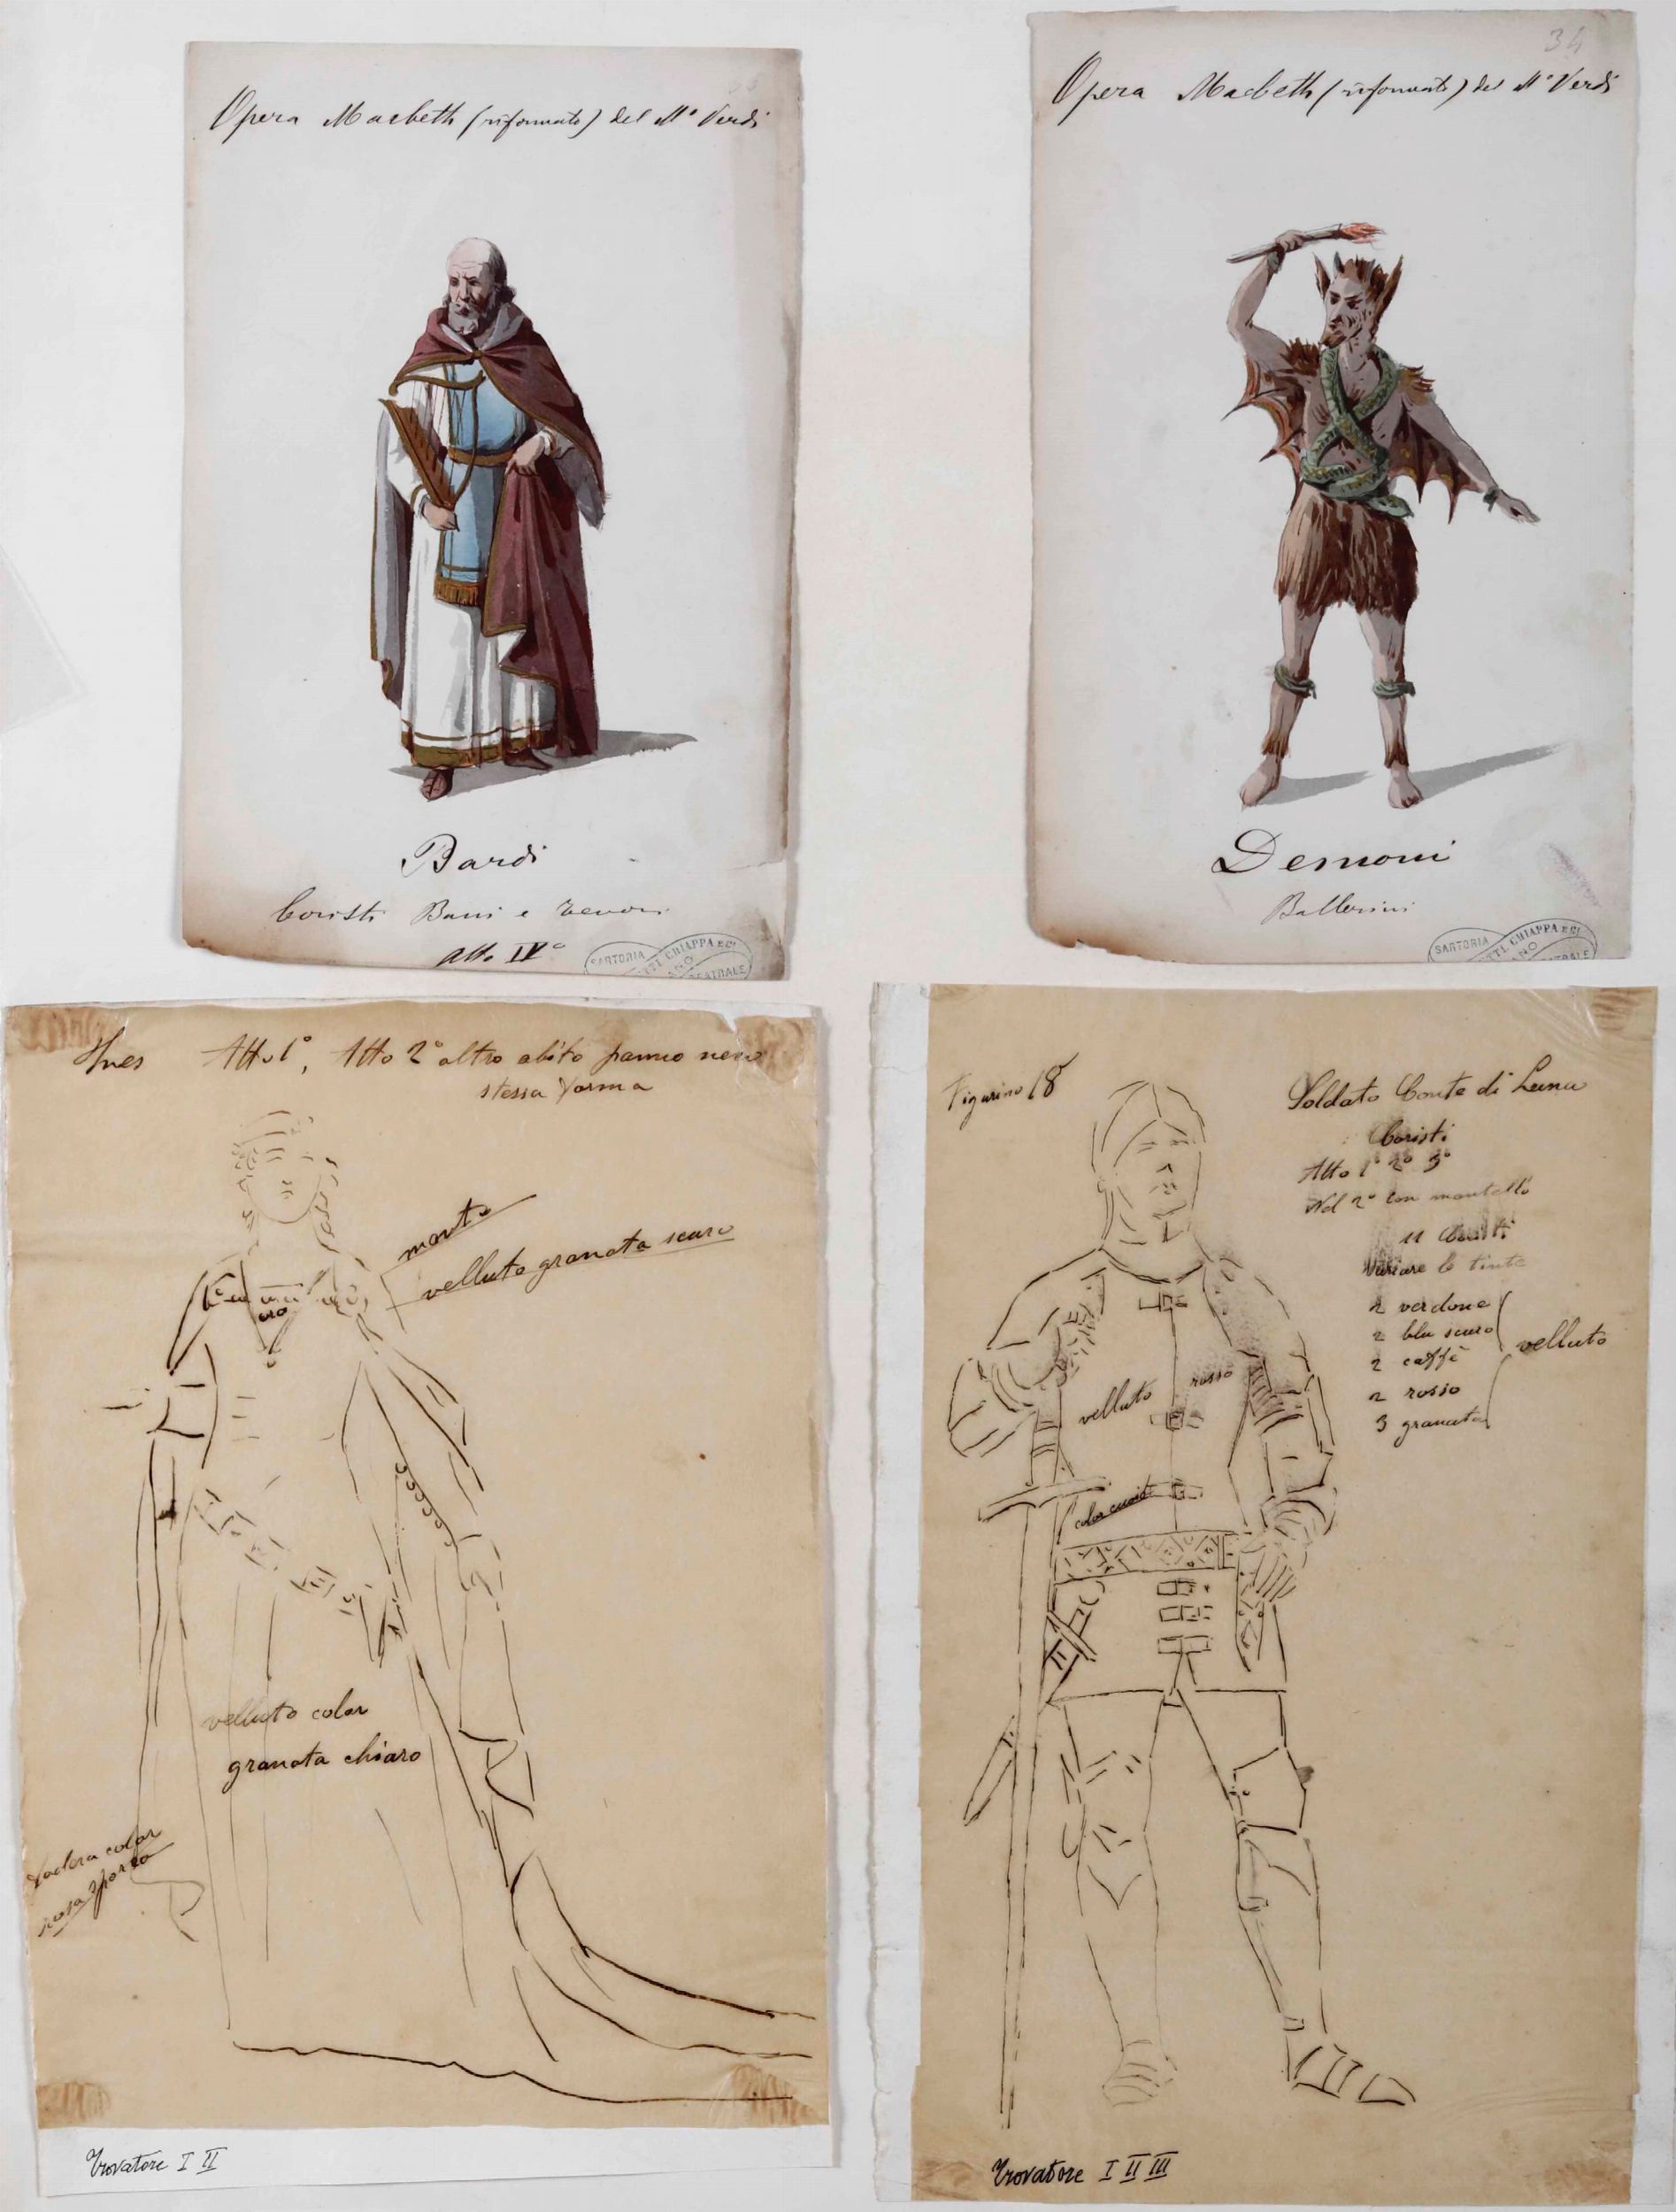 Opera Macbeth (riformato) del Mº Verdi
Bardi
Coristi Bassi e Tenori
Atto IVº
SARTORIA
CHIAPPA E C.
ANO
TEATRALE
34
Opera Macbeth (riformato) del Mº Verdi
Demoni
Ballerini
SARTORIA
CHIAPPA E C.
ANO
TRALE
Ines Atto 1º, Atto 2º altro abito panno nero
stessa forma
manto
velluto granata scuro
oro
velluto color
granata chiaro
fodera color
rosa
Trovatore I II
Figurino 18
Soldato Conte di Luna
Coristi
Atto 1º 2º 3º
Nel 2º con mantello
11 Coristi
Variare le tinte
2 verdone
2 blu scuro
2 caffè
2 rosso
3 granata
velluto
velluto rosso
color cuoio
Trovatore I II III